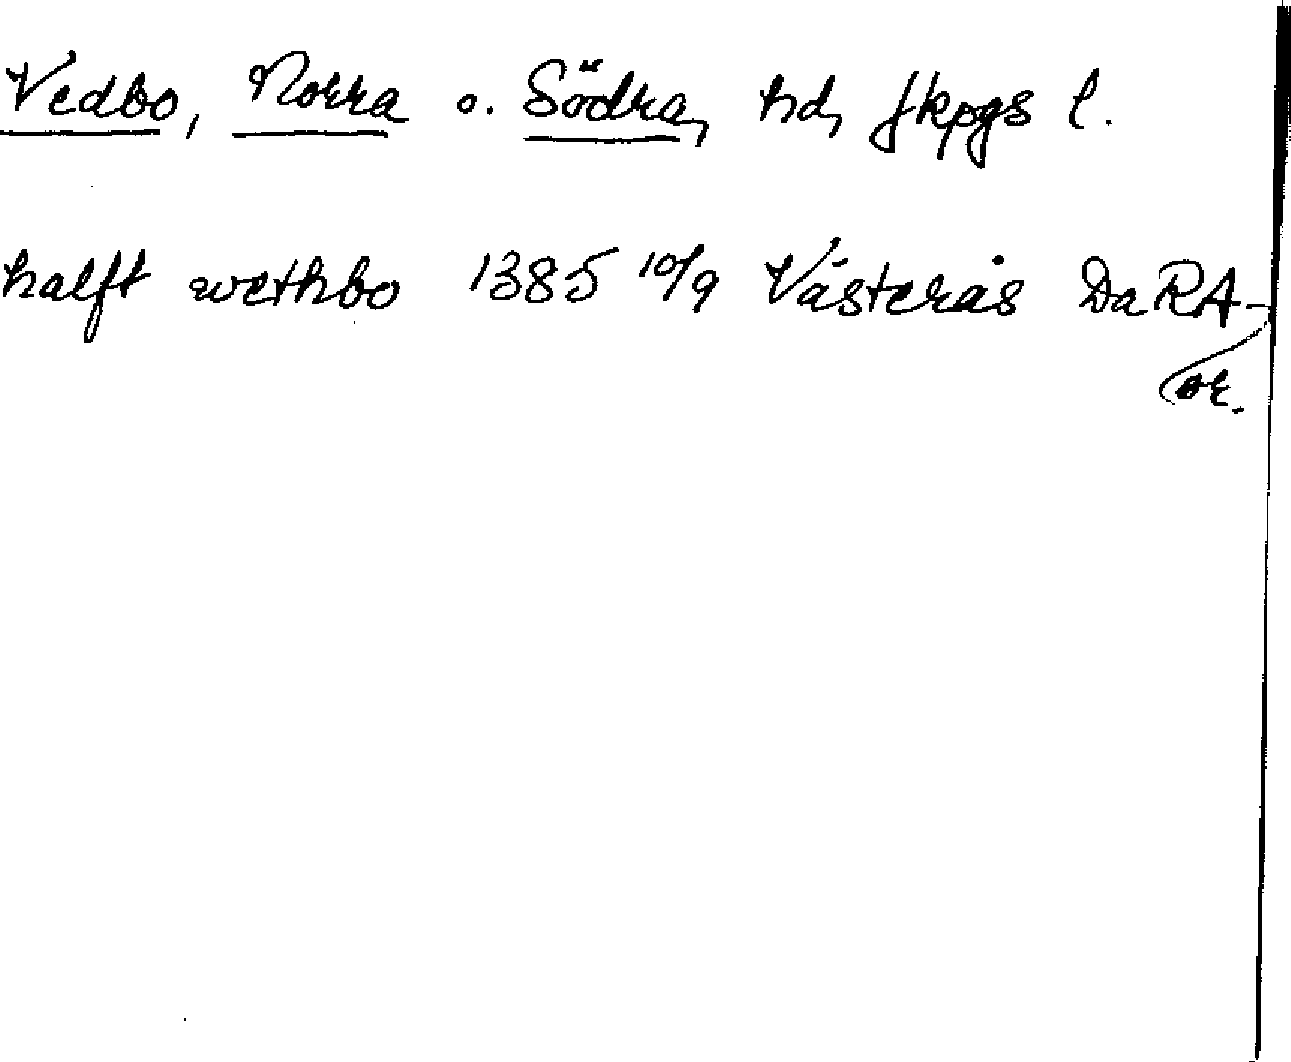 Vedbo, Norra o. Södra, hd, Jkpgs l.
halft wethbo 1385 10/9 Västerås DaRA-
or.